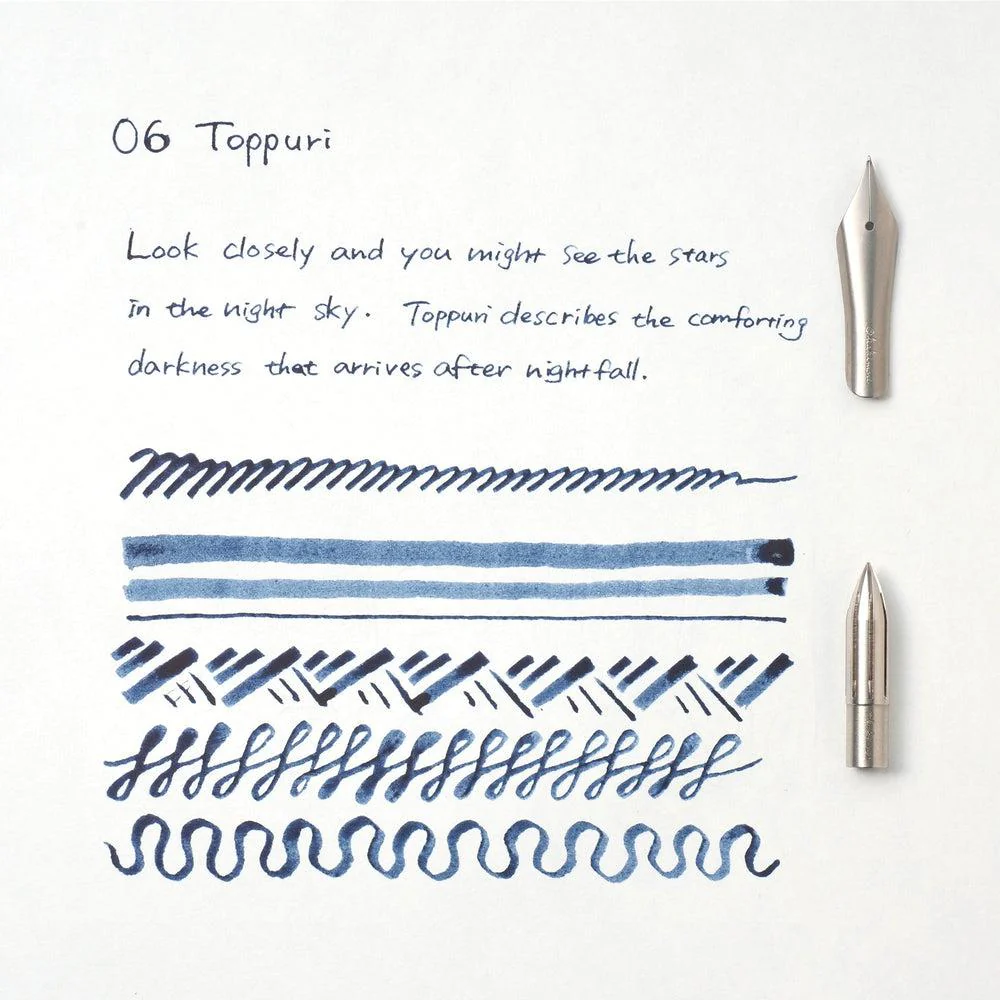 06 Toppuri
Look closely and you might see the stars
in the night sky. Toppuri describes the comforting
darkness that arrives after nightfall.